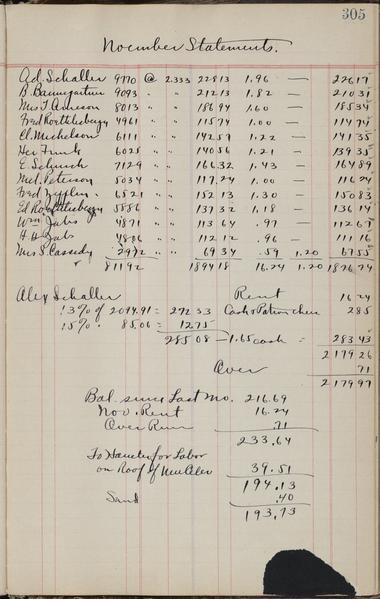 305
November Statements.
Ad. Schaller 9770 @ 2.333 228 13 1.96 — 226 17
B. Baumgartner 9093 " " 212 13 1.82 — 210 31
Mrs T. Arneson 8013 " " 186 94 1.60 — 185 34
Fred Roethlisberger 4961 " " 115 74 1.00 — 114 74
C. Michelson 6111 " " 142 57 1.22 — 141 35
Her Funk 6025 " " 140 56 1.21 — 139 35
E. Schmich 7129 " " 166 32 1.43 — 164 89
Mel. Peterson 5034 " " 117 24 1.00 — 116 24
Fred 6521 " " 152 13 1.30 — 150 83
Ed Roethlisberger 5886 " " 137 32 1.18 — 136 14
Wm Jabs 4871 " " 113 64 .97 — 112 67
H. H. Jabs 4806 " " 112 12 .96 — 111 16
Mrs S. Cassidy 2972 " " 69 34 .59 1.20 67 55
81192 1894 18 16.24 1.20 1876 74
Alex Schaller Rent 16 24
13% of 2094.91 = 272 33 Cash & Patron cheese 285
15% " 85.06 = 12 75
285 08 — 1.65 cash = 283 43
2179 26
Over 71
2179 97
Bal. since Last Mo. 216.69
Nov. Rent 16.24
Over Run .71
233.64
To for Labor
on Roof of 39.51
194.13
Sand .40
193.73